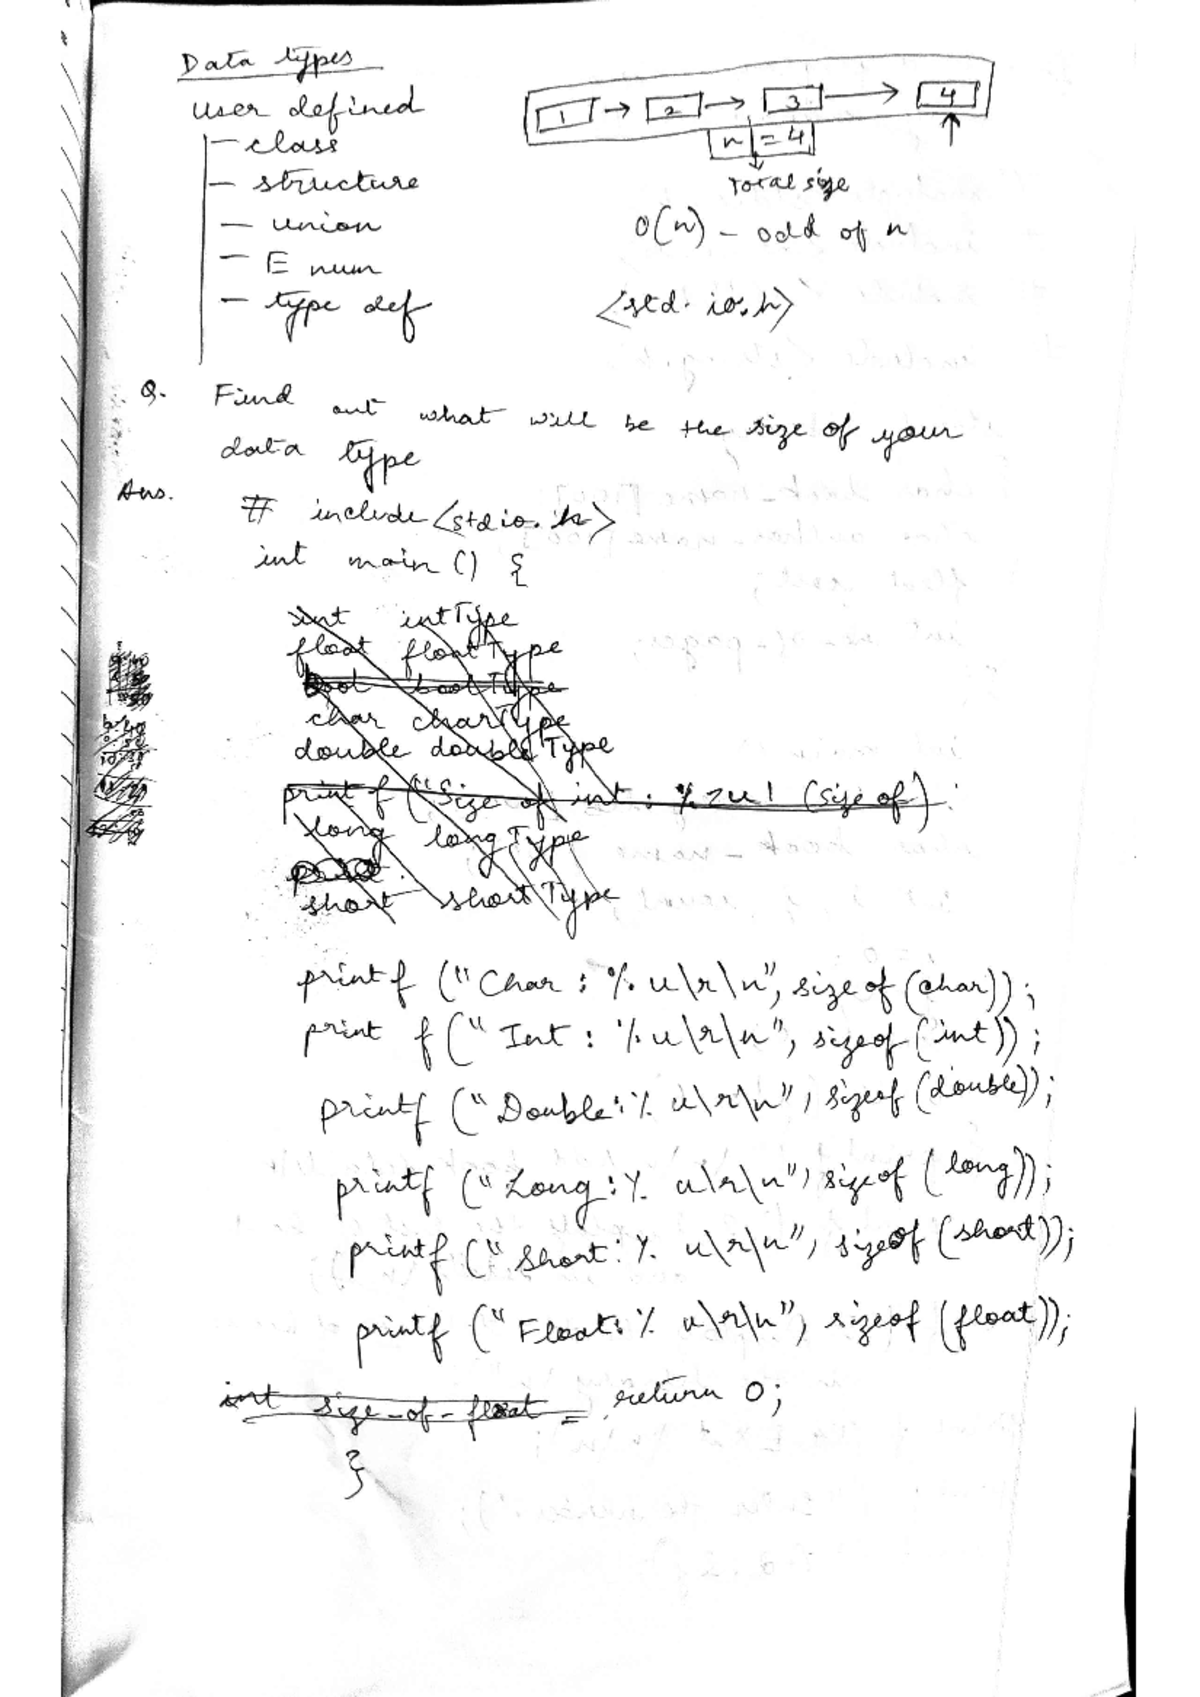 Data types
user defined
- class
- structure
- union
- E num
- type def
1 → 2 → 3 → 4
n = 4
Total size
O(n) - odd of n
<std. io.h>
Q. Find out what will be the size of your
data type
Ans. # include <stdio.h>
int main () {
int intType
float floatType
bool boolType
char charType
double doubleType
printf ("Size of int : % zu! (size of)
long longType
short shortType
printf ("Char : % u\r\n", size of (char));
print f (" Int : % u\r\n", sizeof (int));
printf (" Double: % u\r\n", sizeof (double));
printf (" Long: % u\r\n", sizeof (long));
printf (" Short: % u\r\n", sizeof (short));
printf (" Float: % u\r\n", sizeof (float));
int size-of-float = return 0;
}